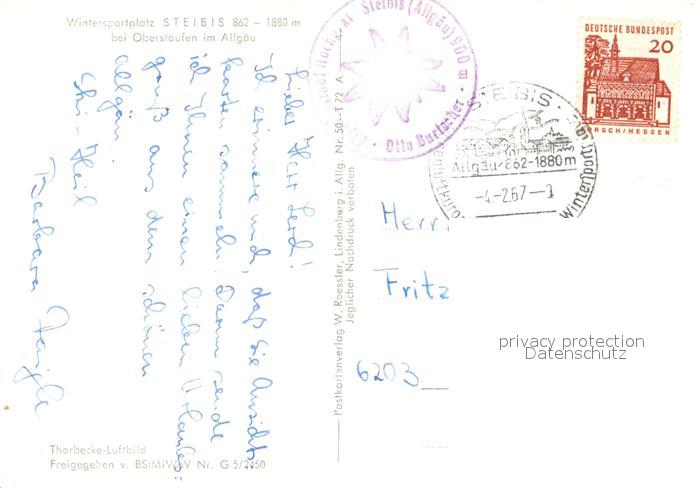 Wintersportplatz STEIBIS 862 – 1880 m
bei Oberstaufen im Allgäu
Lieber Herr
Ich erinnere mich, daß Sie Ansichts-
karten sammeln. Darum sende
ich Ihnen einen lieben Urlaubs-
gruß aus dem schönen
Allgäu
Ski-Heil
Barbara
Thorbecke-Luftbild
Freigegeben v. BStMfWuV Nr. G 5/2450
Postkartenverlag W. Roessler, Lindenberg i. Allg. Nr. 50-1772 A
Jeglicher Nachdruck verboten
Steibis (Allgäu) 900 m
Otto
STEIBIS
Allgäu·862-1880m
-4.-2.67--
Wintersport
DEUTSCHE BUNDESPOST
20
LORSCH/HESSEN
Herrn
Fritz
6203
privacy protection
Datenschutz